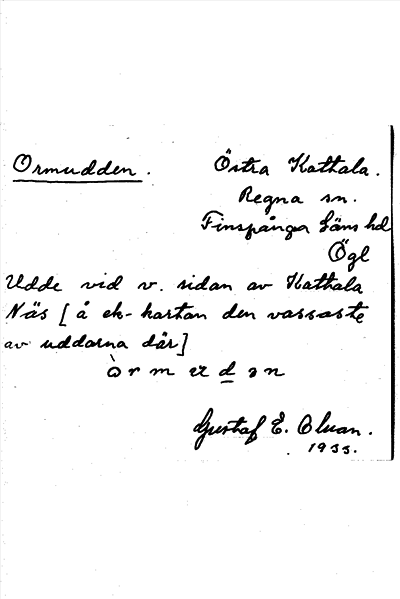 Ormudden.
Östra Kathala.
Regna sn.
Finspånga Läns hd
Ögl
Udde vid v. sidan av Kathala
Näs [å ek-kartan den vassaste
av uddarna där]
òrmudən
Gustaf E.
1933.